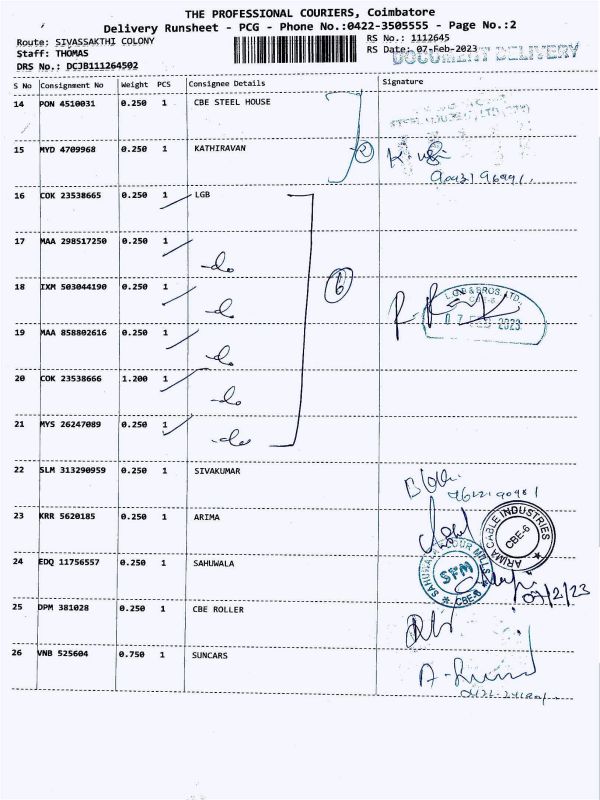 THE PROFESSIONAL COURIERS, Coimbatore
Delivery Runsheet - PCG - Phone No.:0422-3505555 - Page No.:2
Route: SIVASSAKTHI COLONY
RS No.: 1112645
Staff: THOMAS
RS Date: 07-Feb-2023
DOCUMENT DELIVERY
DRS No.: DCJB111264502
S No Consignment No Weight PCS Consignee Details Signature
14 PON 4510031 0.250 1 CBE STEEL HOUSE
15 MYD 4709968 0.250 1 KATHIRAVAN
2
16 COK 23538665 0.250 1 LGB
17 MAA 298517250 0.250 1 -do
18 IXM 503044190 0.250 1 -do
6
L.G.B & BROS. LTD.
CBE-6
07 FEB 2023
19 MAA 858802616 0.250 1 -do
20 COK 23538666 1.200 1 -do
21 MYS 26247089 0.250 1 -do
22 SLM 313290959 0.250 1 SIVAKUMAR
23 KRR 5620185 0.250 1 ARIMA
ARIMA CABLE INDUSTRIES
CBE-6
24 EDQ 11756557 0.250 1 SAHUWALA
SAHUWALA FLOUR MILLS
SFM
CBE-6
07/2/23
25 DPM 381028 0.250 1 CBE ROLLER
26 VNB 525604 0.750 1 SUNCARS